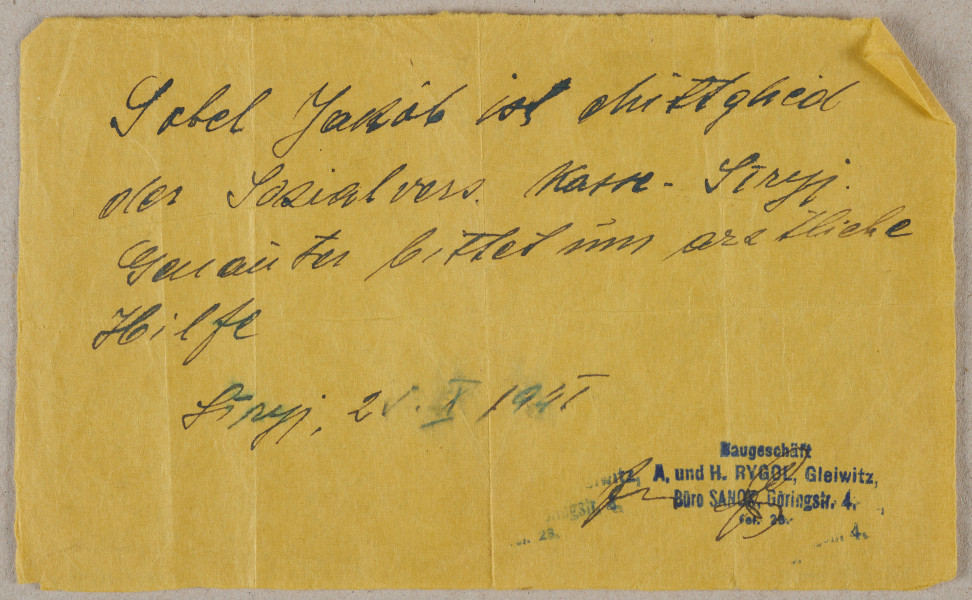 Sobel Jakob ist Mittglied
der Sozialvers. Kasse - Stryj.
Genanter bittet um arztliche
Hilfe
Stryj, 25. IX 1941
Baugeschäft
A. und H. RYGOL, Gleiwitz,
Büro SANOK, Göringstr. 4.
Tel. 28.